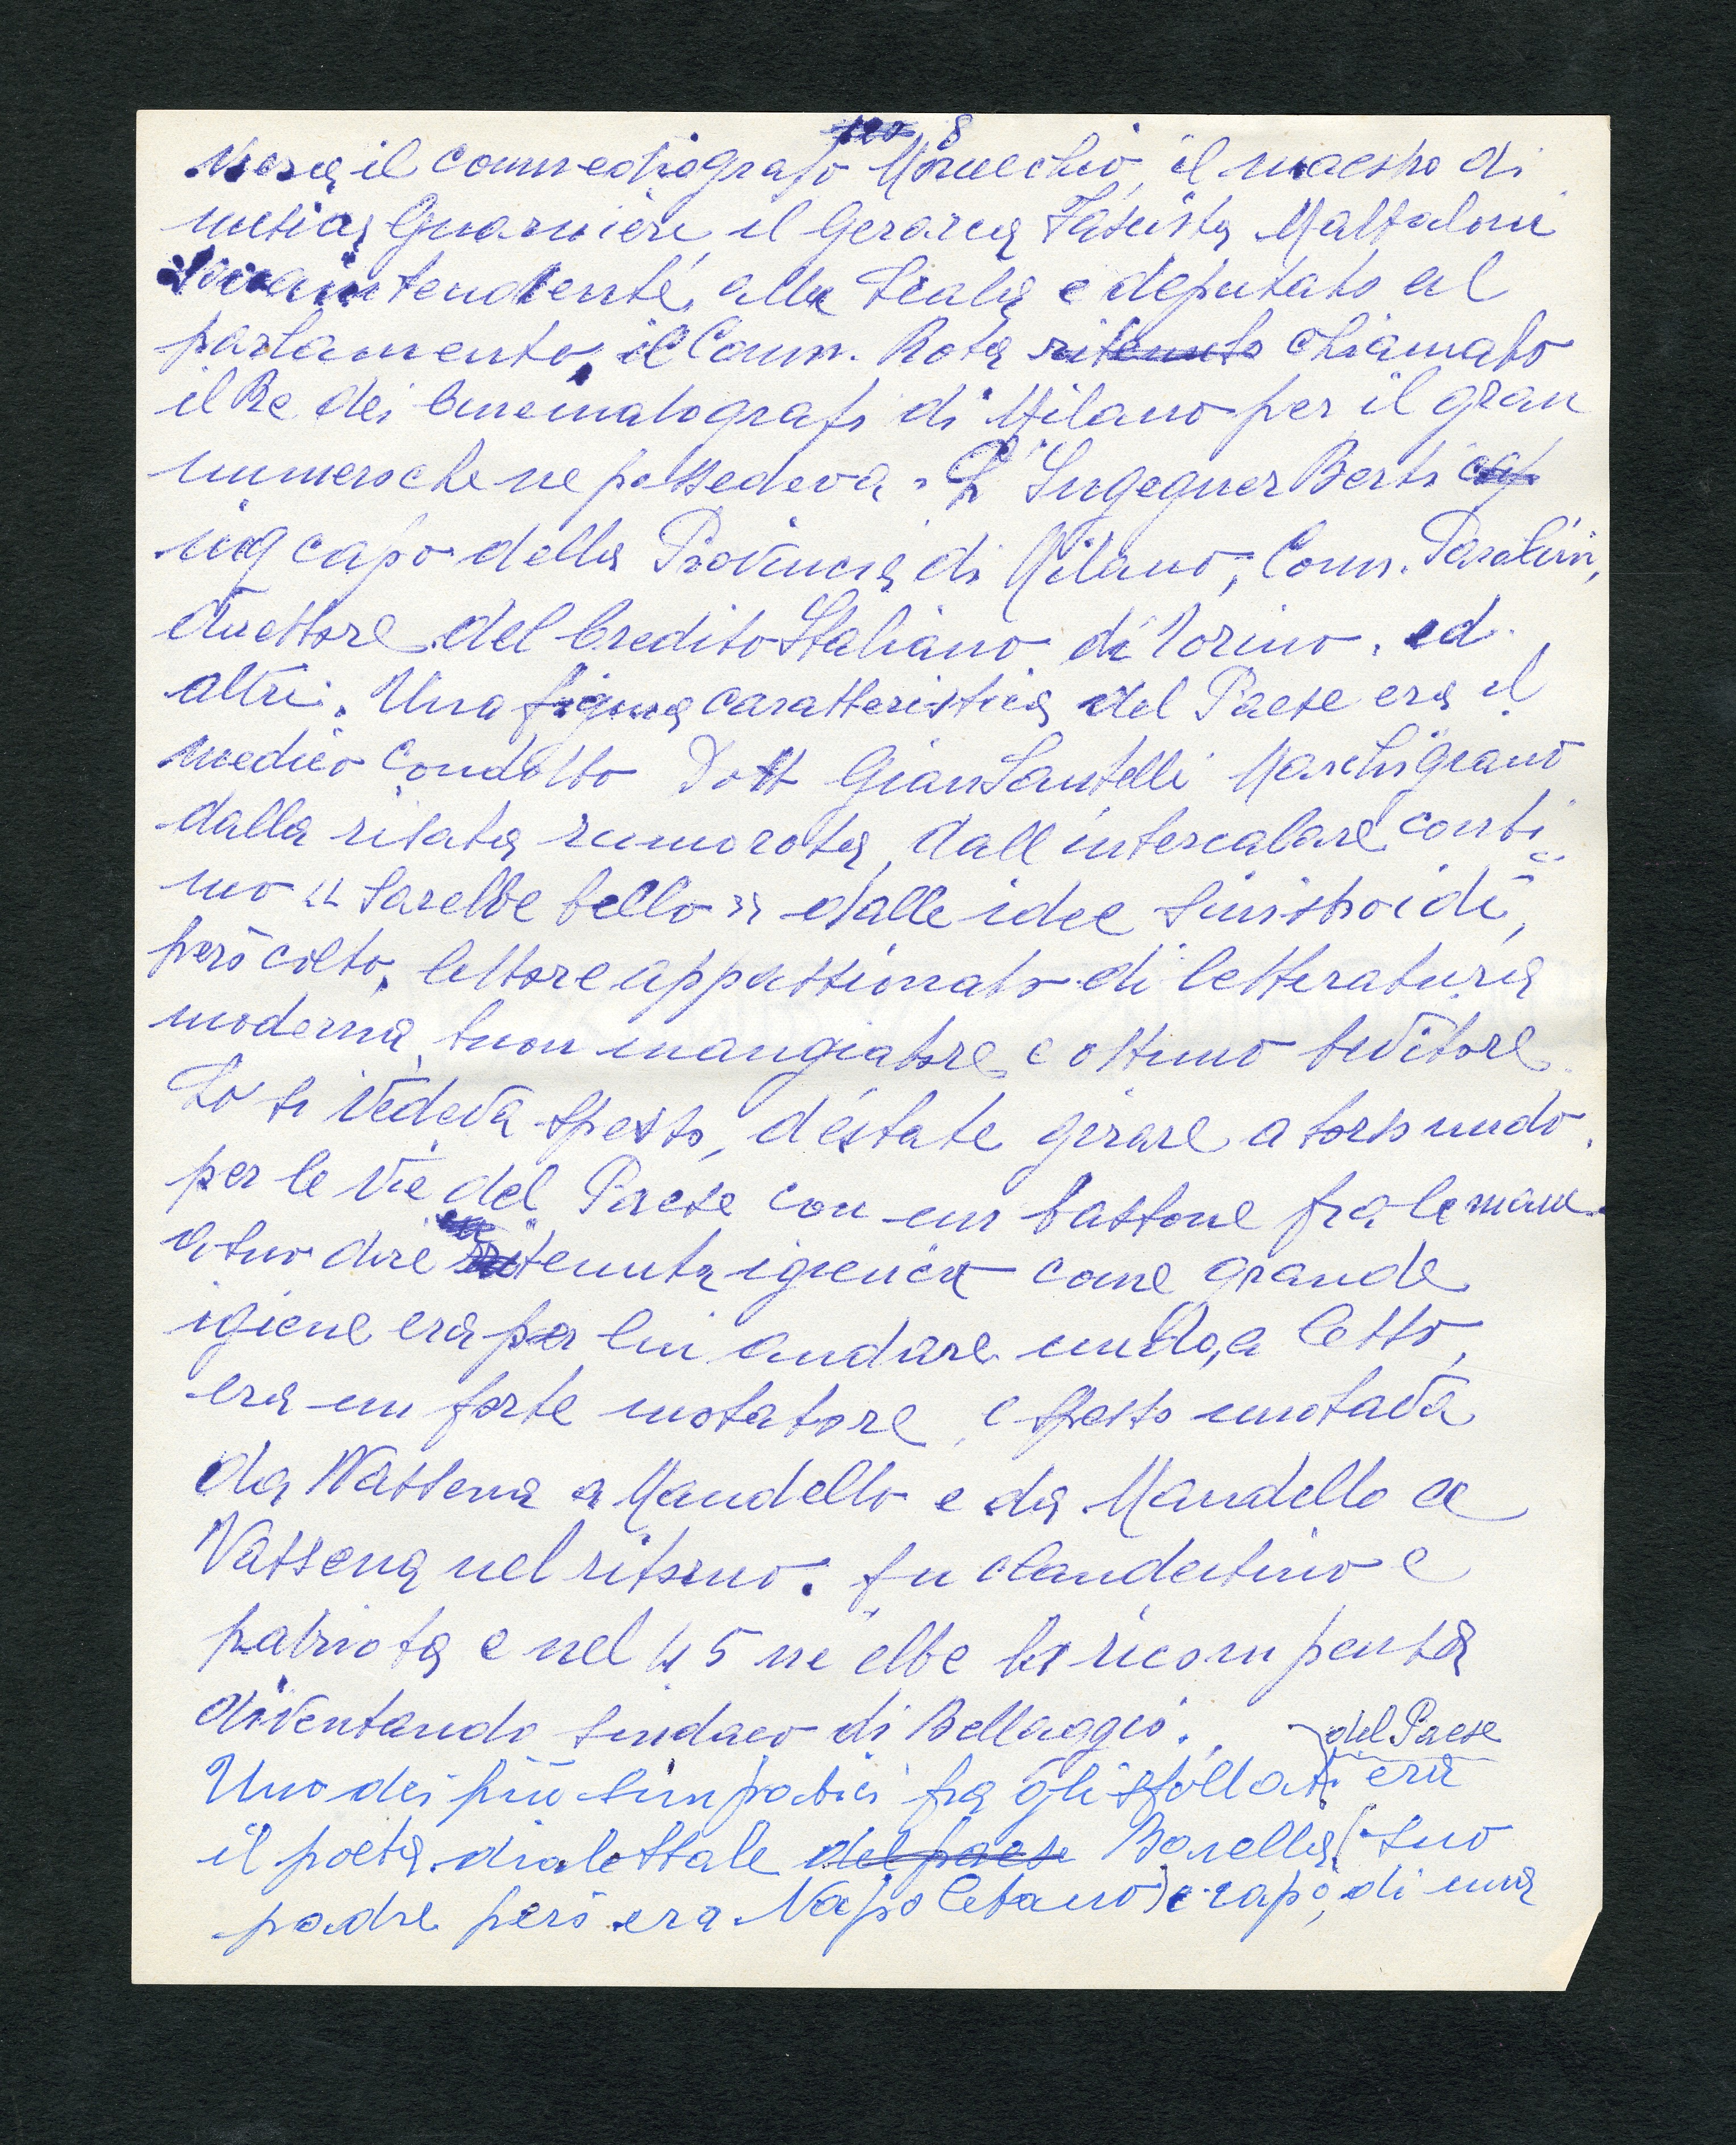 8
V'era il commediografo Morucchio, il maestro di
musica Guarnieri il Gerarca Fascista Mataloni
Sovraintendente, alla Scala e deputato al
parlamento, il Comm. Rota ritenuto chiamato
il Re dei Cinematografi di Milano per il gran
numero che ne possedeva. L'Ingegner Berti cap
ing capo della Provincia di Milano, Comm. Parolini,
direttore del Credito Italiano di Torino. ed
altri. Una figura caratteristica del Paese era il
medico condotto Dott GianSantelli Marchigiano
dalla risata rumorosa, dall'intercalare conti
nuo "sarebbe bello" dalle idee sinistroidi,
però colto, lettore appassionato di letteratura
moderna, buon mangiatore e ottimo bevitore
Lo si vedeva spesso, d'estate girare a torso nudo.
per le vie del Paese con un bastone fra le mani
a suo dire tenuta igienica come grande
igiene era per lui andare nudo, a letto,
era un forte nuotatore, e spesso nuotava
da Vassena a Mandello e da Mandello a
Vassena nel ritorno. fu clandestino e
patriota e nel 45 ne ebbe la ricompensa
diventando sindaco di Bellaggio.
del Paese
Uno dei più simpatici fra gli sfollati era
il poeta dialettale del paese Borella (suo
padre però era Napoletano) e capo, di una